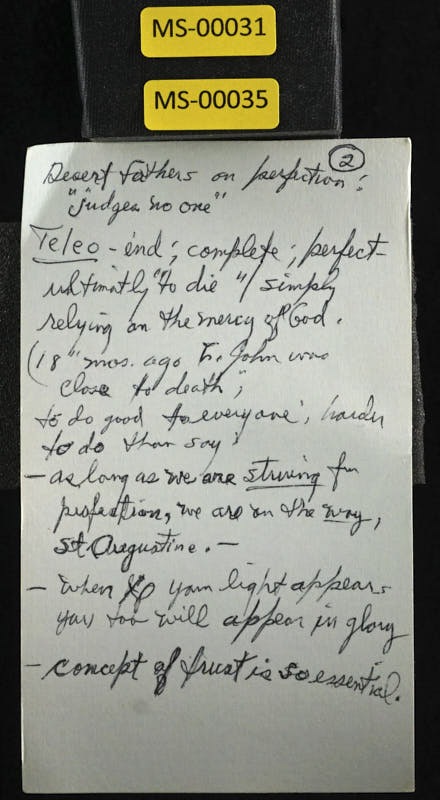 MS-00031
MS-00035
2
Desert Fathers on perfection:
"judges no one"
Teleo - end; complete; perfect-
ultimatly "to die"/ simply
relying on the mercy of God.
(18 mos. ago Fr. John was
close to death";
to do good to everyone; harder
to do than say
- as long as we are striving for
perfection, we are on the way,
St Augustine. -
- when your light appears
you too will appear in glory
- concept of trust is so essential.